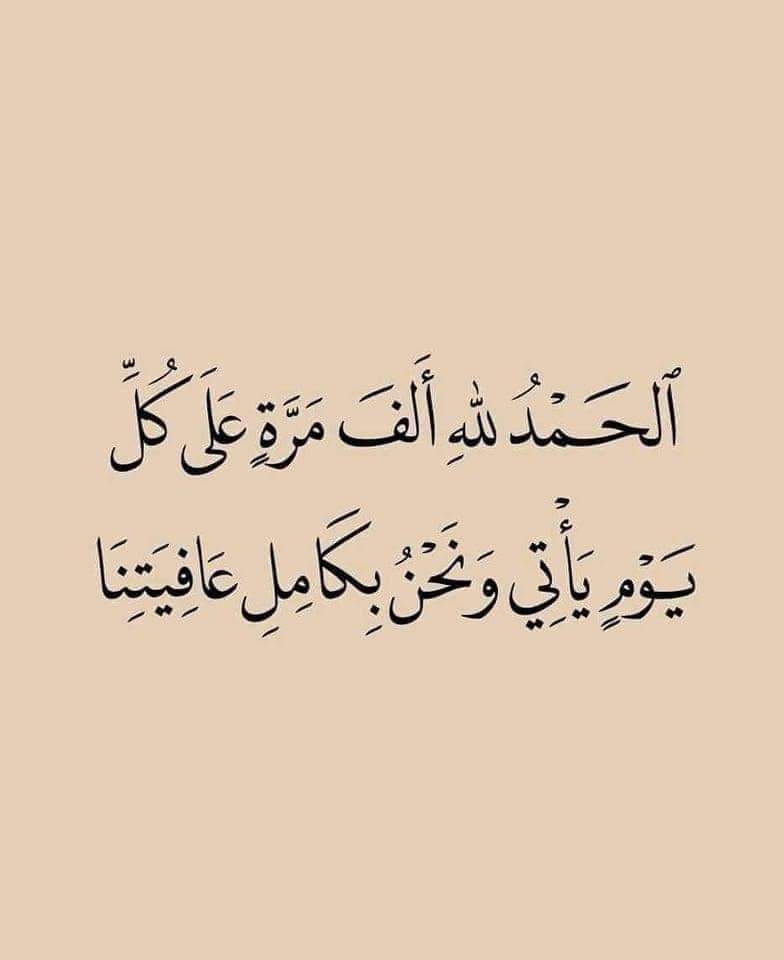 ٱلحَمْدُ للهِ أَلفَ مَرَّةٍ عَلَى كُلِّ
يَوْمٍ يَأْتِي وَنَحْنُ بِكَامِلِ عَافِيَتِنَا